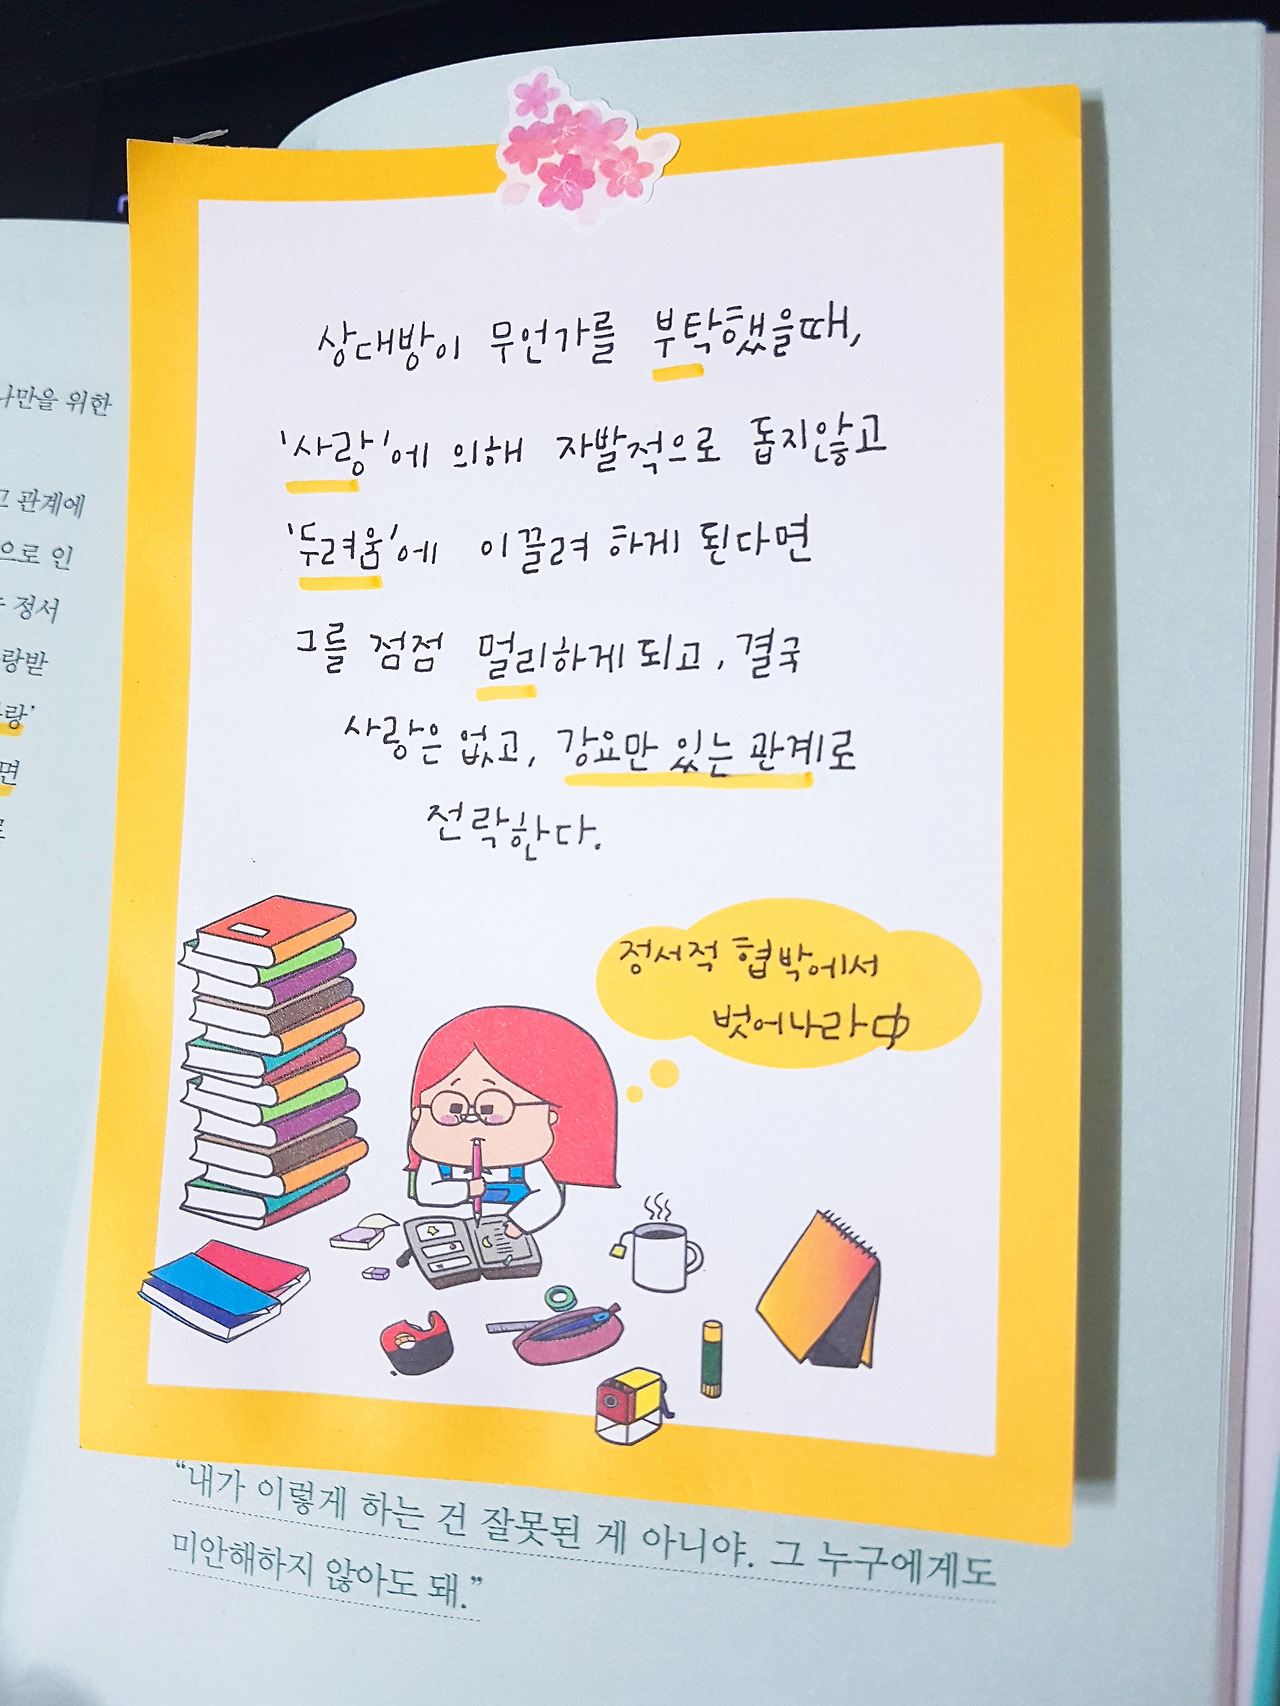 나만을 위한
관계에
으로 인
정서
랑받
랑’
면
상대방이 무언가를 부탁했을때,
'사랑'에 의해 자발적으로 돕지않고
'두려움'에 이끌려 하게 된다면
그를 점점 멀리하게 되고, 결국
사랑은 없고, 강요만 있는 관계로
전락한다.
정서적 협박에서
벗어나라中
“내가 이렇게 하는 건 잘못된 게 아니야. 그 누구에게도
미안해하지 않아도 돼.”